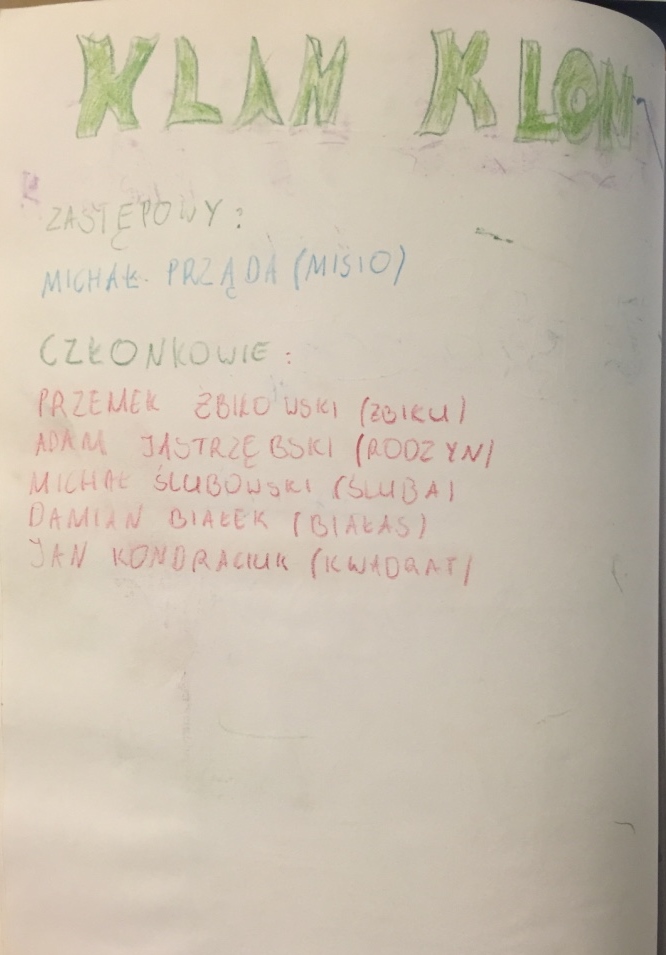 KLAN KLON
ZASTĘPOWY:
MICHAŁ PRZĄDA (MISIO)
CZŁONKOWIE:
PRZEMEK ŻBIKOWSKI (ŻBIKU)
ADAM JASTRZĘBSKI (RODZYN)
MICHAŁ ŚLUBOWSKI (ŚLUBA)
DAMIAN BIAŁEK (BIAŁAS)
JAN KONDRACIUK (KWADRAT)